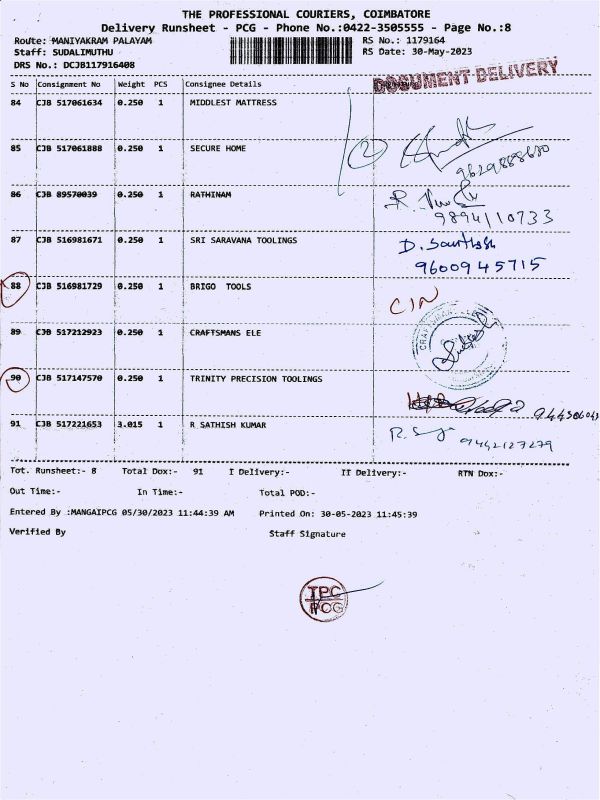 THE PROFESSIONAL COURIERS, COIMBATORE
Delivery Runsheet - PCG - Phone No.:0422-3505555 - Page No.:8
Route: MANIYAKRAM PALAYAM RS No.: 1179164
Staff: SUDALIMUTHU RS Date: 30-May-2023
DRS No.: DCJB117916408
DOCUMENT DELIVERY
S No Consignment No Weight PCS Consignee Details
84 CJB 517061634 0.250 1 MIDDLEST MATTRESS
85 CJB 517061888 0.250 1 SECURE HOME
2
9629888680
86 CJB 89570039 0.250 1 RATHINAM
R.
9894110733
87 CJB 516981671 0.250 1 SRI SARAVANA TOOLINGS
D.
9600945715
88 CJB 516981729 0.250 1 BRIGO TOOLS
CIN
89 CJB 517212923 0.250 1 CRAFTSMANS ELE
90 CJB 517147570 0.250 1 TRINITY PRECISION TOOLINGS
91 CJB 517221653 3.015 1 R SATHISH KUMAR
R.
9442127279
Tot. Runsheet:- 8 Total Dox:- 91 I Delivery:- II Delivery:- RTN Dox:-
Out Time:- In Time:- Total POD:-
Entered By :MANGAIPCG 05/30/2023 11:44:39 AM Printed On: 30-05-2023 11:45:39
Verified By Staff Signature
TPC
PCG